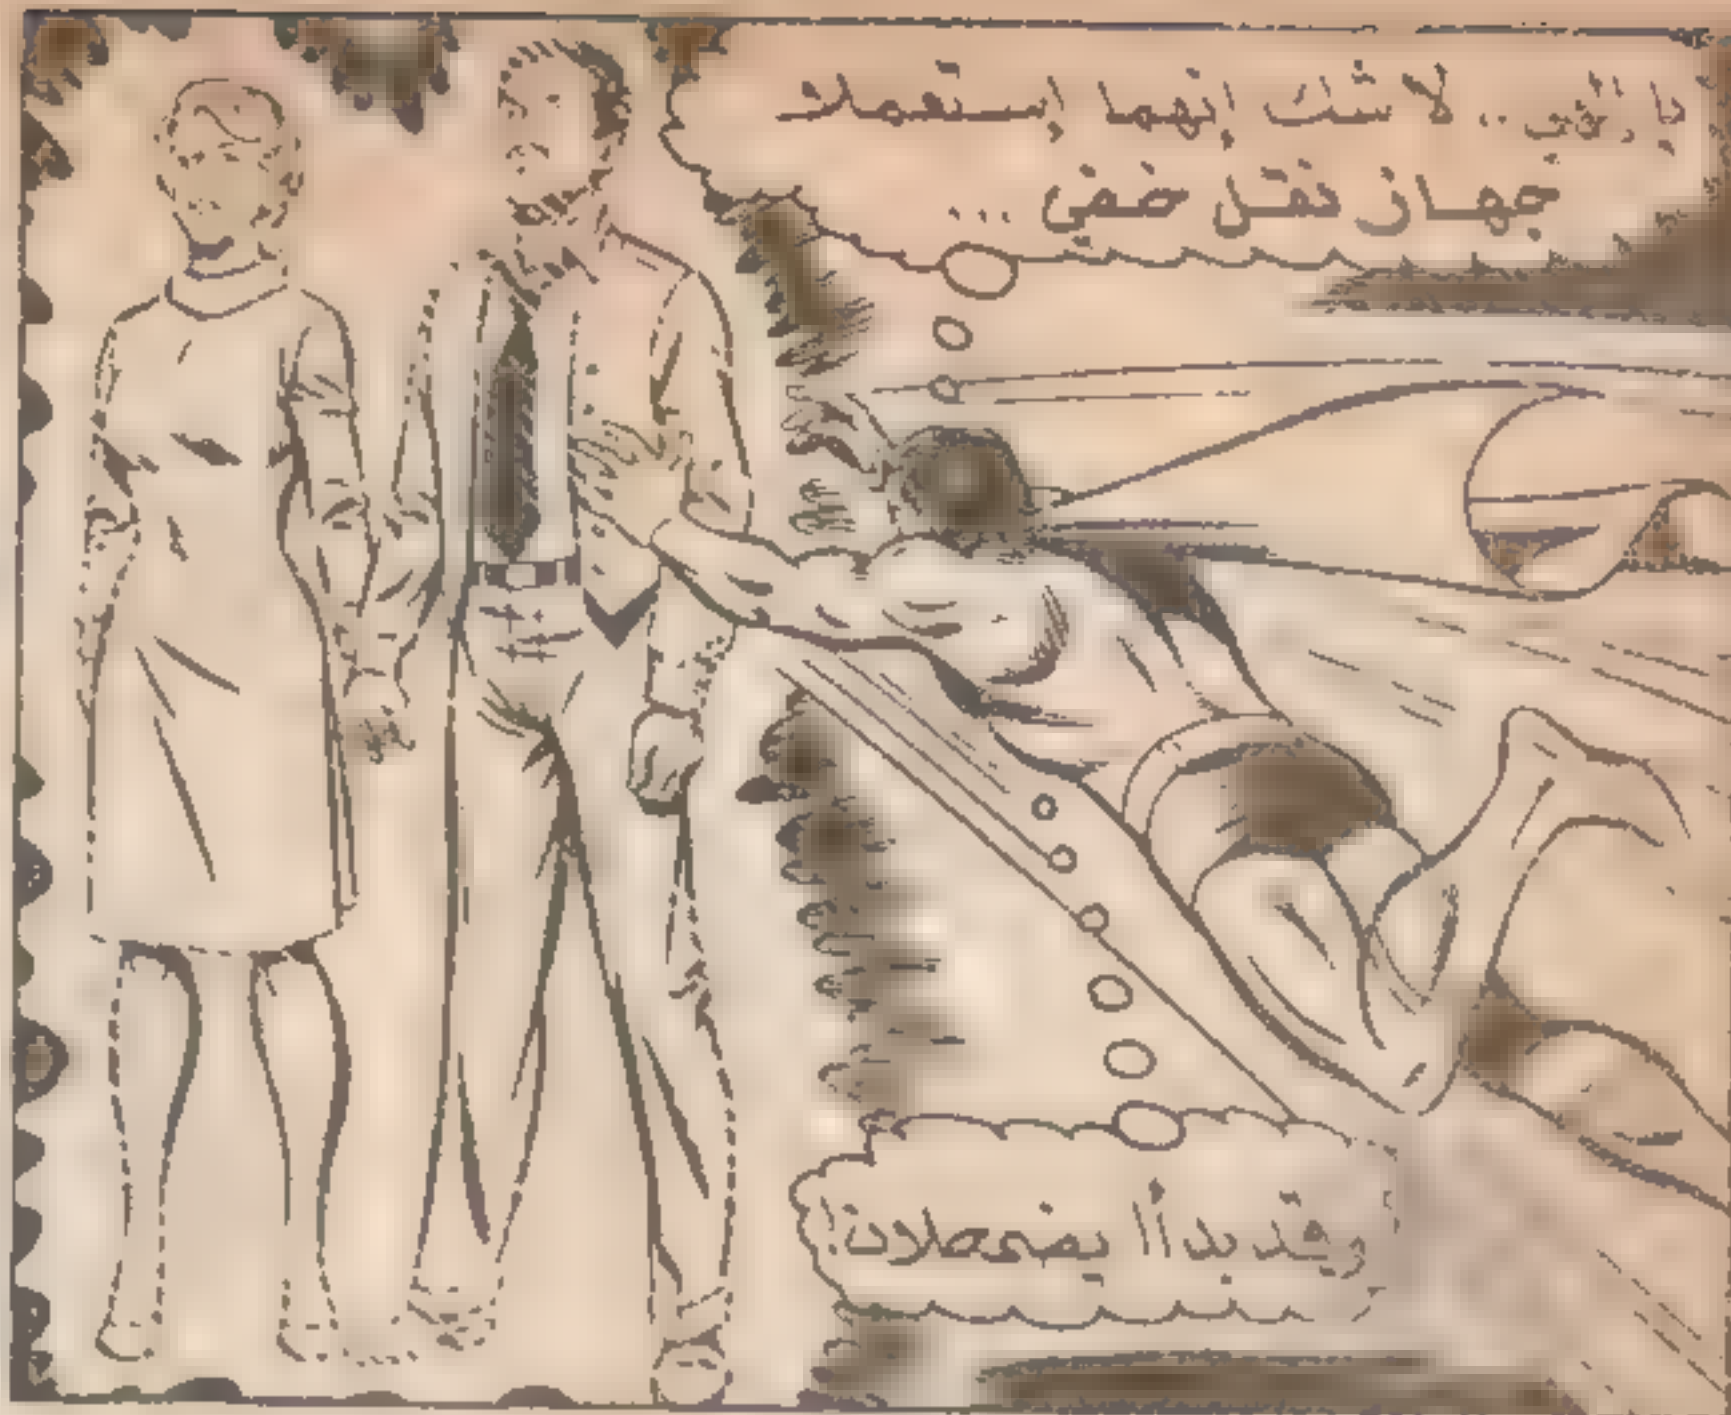 .. لا شك إنهما إستعملا
جهاز نقل خفي ...
وقد بدأا يضمحلان!